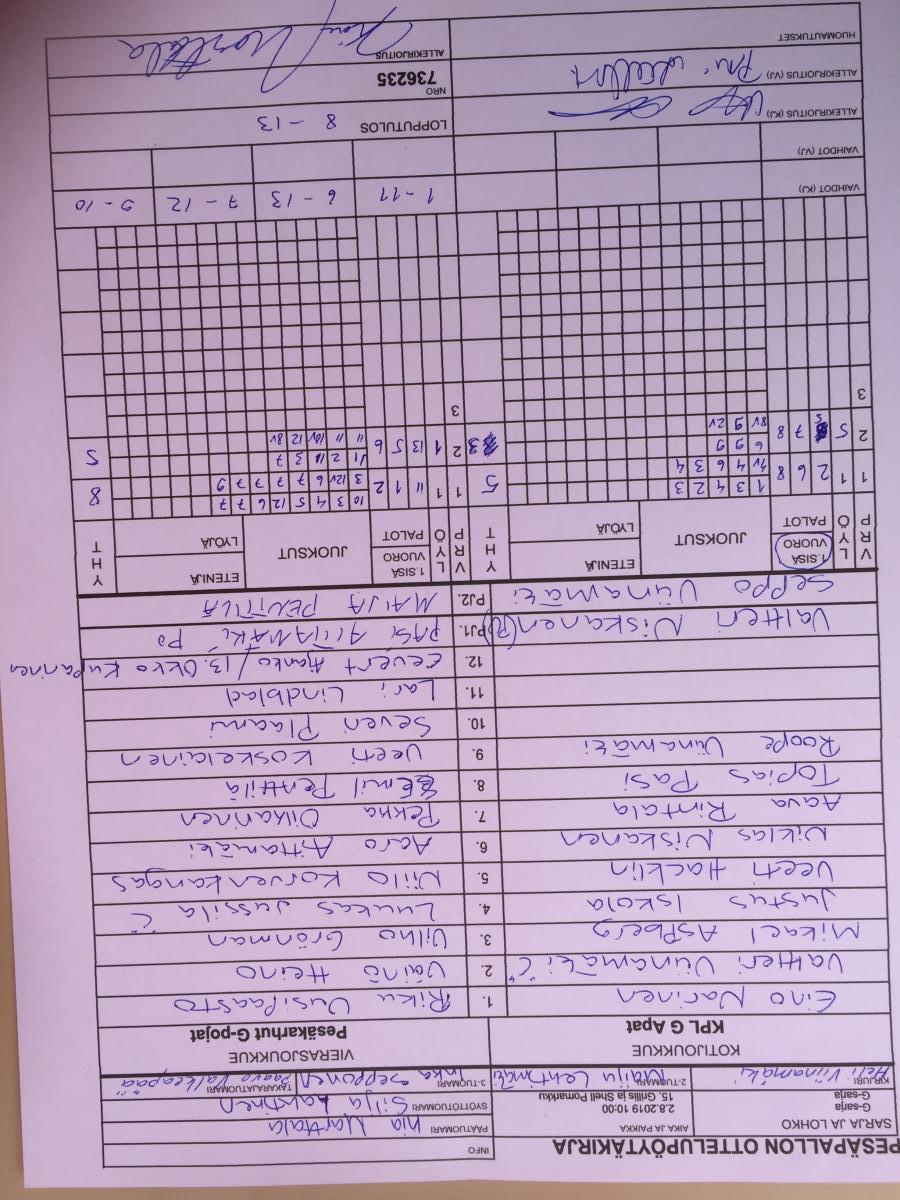 PESÄPALLON OTTELUPÖYTÄKIRJA
INFO
SARJA JA LOHKO
G-sarja
G-sarja
AIKA JA PAIKKA
2.8.2019 10:00
15. Grillis ja Shell Pomarkku
PÄÄTUOMARI Nia Marttala
SYÖTTÖTUOMARI Silja Lahtinen
KIRJURI Heli Viinamäki
2-TUOMARI Maiju Lehtimäki
3-TUOMARI Inka Sepponen
TAKARAJATUOMARI Paavo Valkeapää
KOTIJOUKKUE
KPL G Apat
VIERASJOUKKUE
Pesäkarhut G-pojat
Eino Narinen 1. Riku Uusipaasto
Valtteri Viinamäki C 2. Väinö Heino
Mikael Aspberg 3. Vilho Grönman
Justus Iskola 4. Luukas Jussila C
Veeti Hacklin 5. Niilo Korvenkangas
Niklas Niskanen 6. Aaro Aittamäki
Aava Rintala 7. Pekka Oikarinen
Topias Pasi 8. Emil Penttilä
Roope Viinamäki 9. Veeti Koskelainen
10. Severi Plaami
11. Lari Lindblad
12. Eevert Ajanko / 13. Okko Kuparinen
Valtteri Niskanen (PJ) PJ1. PASI AITTAMÄKI PJ
Seppo Viinamäki PJ2. MAIJA PENTTILÄ
P R V
L Ö Y
1.SISÄ VUORO
PALOT
JUOKSUT
ETENIJÄ
LYÖJÄ
Y H T
P R V
L Ö Y
1.SISÄ VUORO
PALOT
JUOKSUT
ETENIJÄ
LYÖJÄ
Y H T
1 1 2 6 8 1 3 4 2 3 5 1 1 11 1 2 10 3 4 5 12 6 7 7 8
7v 4 6 3 4 3 12v 6 7 7 7 7 9
2 5 7 8 6 9 9 3 2 1 13 5 6 11 2 11 3 7 5
8v 9 2v 11 11 10v 12 8v
3 3
VAIHDOT (KJ) 1-11 6-13 7-12 9-10
VAIHDOT (VJ)
ALLEKIRJOITUS (KJ)
LOPPUTULOS 8-13
ALLEKIRJOITUS (VJ)
NRO
736235
HUOMAUTUKSET
ALLEKIRJOITUS